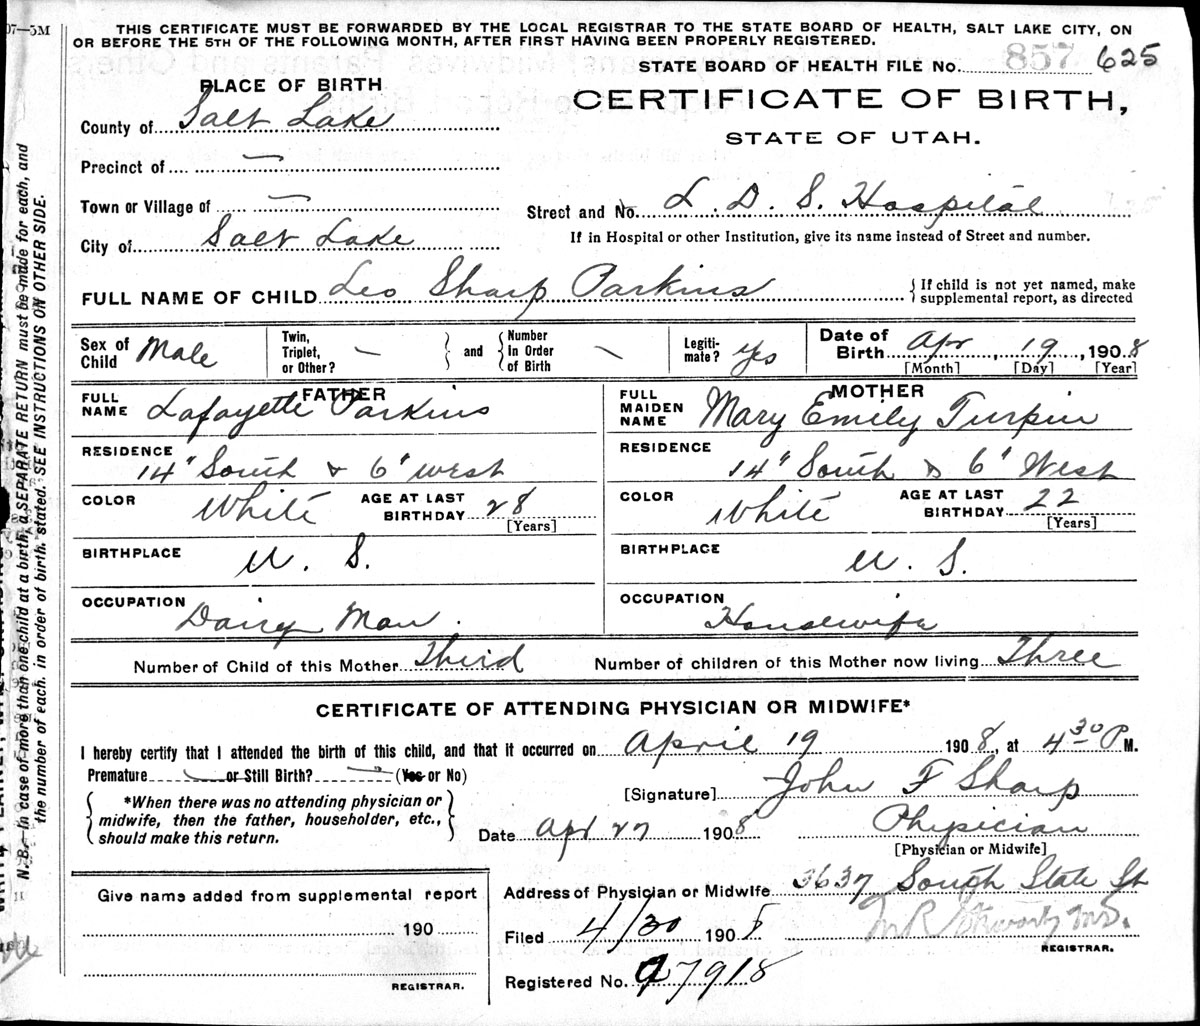 07—5M
THIS CERTIFICATE MUST BE FORWARDED BY THE LOCAL REGISTRAR TO THE STATE BOARD OF HEALTH, SALT LAKE CITY, ON
OR BEFORE THE 5TH OF THE FOLLOWING MONTH, AFTER FIRST HAVING BEEN PROPERLY REGISTERED.
STATE BOARD OF HEALTH FILE No. 857 625
PLACE OF BIRTH
CERTIFICATE OF BIRTH,
STATE OF UTAH.
County of Salt Lake
Precinct of —
Town or Village of —
Street and No. L. D. S. Hospital
City of Salt Lake
If in Hospital or other Institution, give its name instead of Street and number.
FULL NAME OF CHILD Leo Sharp Parkins
{ If child is not yet named, make
supplemental report, as directed
Sex of Child Male
Twin, Triplet, or Other? —
} and { Number In Order of Birth —
Legiti-mate? Yes
Date of Birth Apr, 19, 1908
[Month] [Day] [Year]
FATHER
FULL NAME Lafayette Parkins
RESIDENCE 14" South & 6" West
COLOR White AGE AT LAST BIRTHDAY 28
[Years]
BIRTHPLACE U. S.
OCCUPATION Dairy Man.
MOTHER
FULL MAIDEN NAME Mary Emily Turpin
RESIDENCE 14" South & 6" West
COLOR White AGE AT LAST BIRTHDAY 22
[Years]
BIRTHPLACE U. S.
OCCUPATION Housewife
Number of Child of this Mother Third Number of children of this Mother now living Three
CERTIFICATE OF ATTENDING PHYSICIAN OR MIDWIFE*
I hereby certify that I attended the birth of this child, and that it occurred on April 19 1908, at 4 30 P M.
Premature — or Still Birth? — (Yes or No)
{ *When there was no attending physician or
midwife, then the father, householder, etc.,
should make this return. }
[Signature] John F Sharp
Date Apr 27 1908
Physician
[Physician or Midwife]
Give name added from supplemental report
190
REGISTRAR.
Address of Physician or Midwife 3637 South State St
Filed 4/30 1908
REGISTRAR.
Registered No. 97918
N. B.—In case of more than one child at a birth, a SEPARATE RETURN must be made for each, and
the number of each, in order of birth, stated. SEE INSTRUCTIONS ON OTHER SIDE.